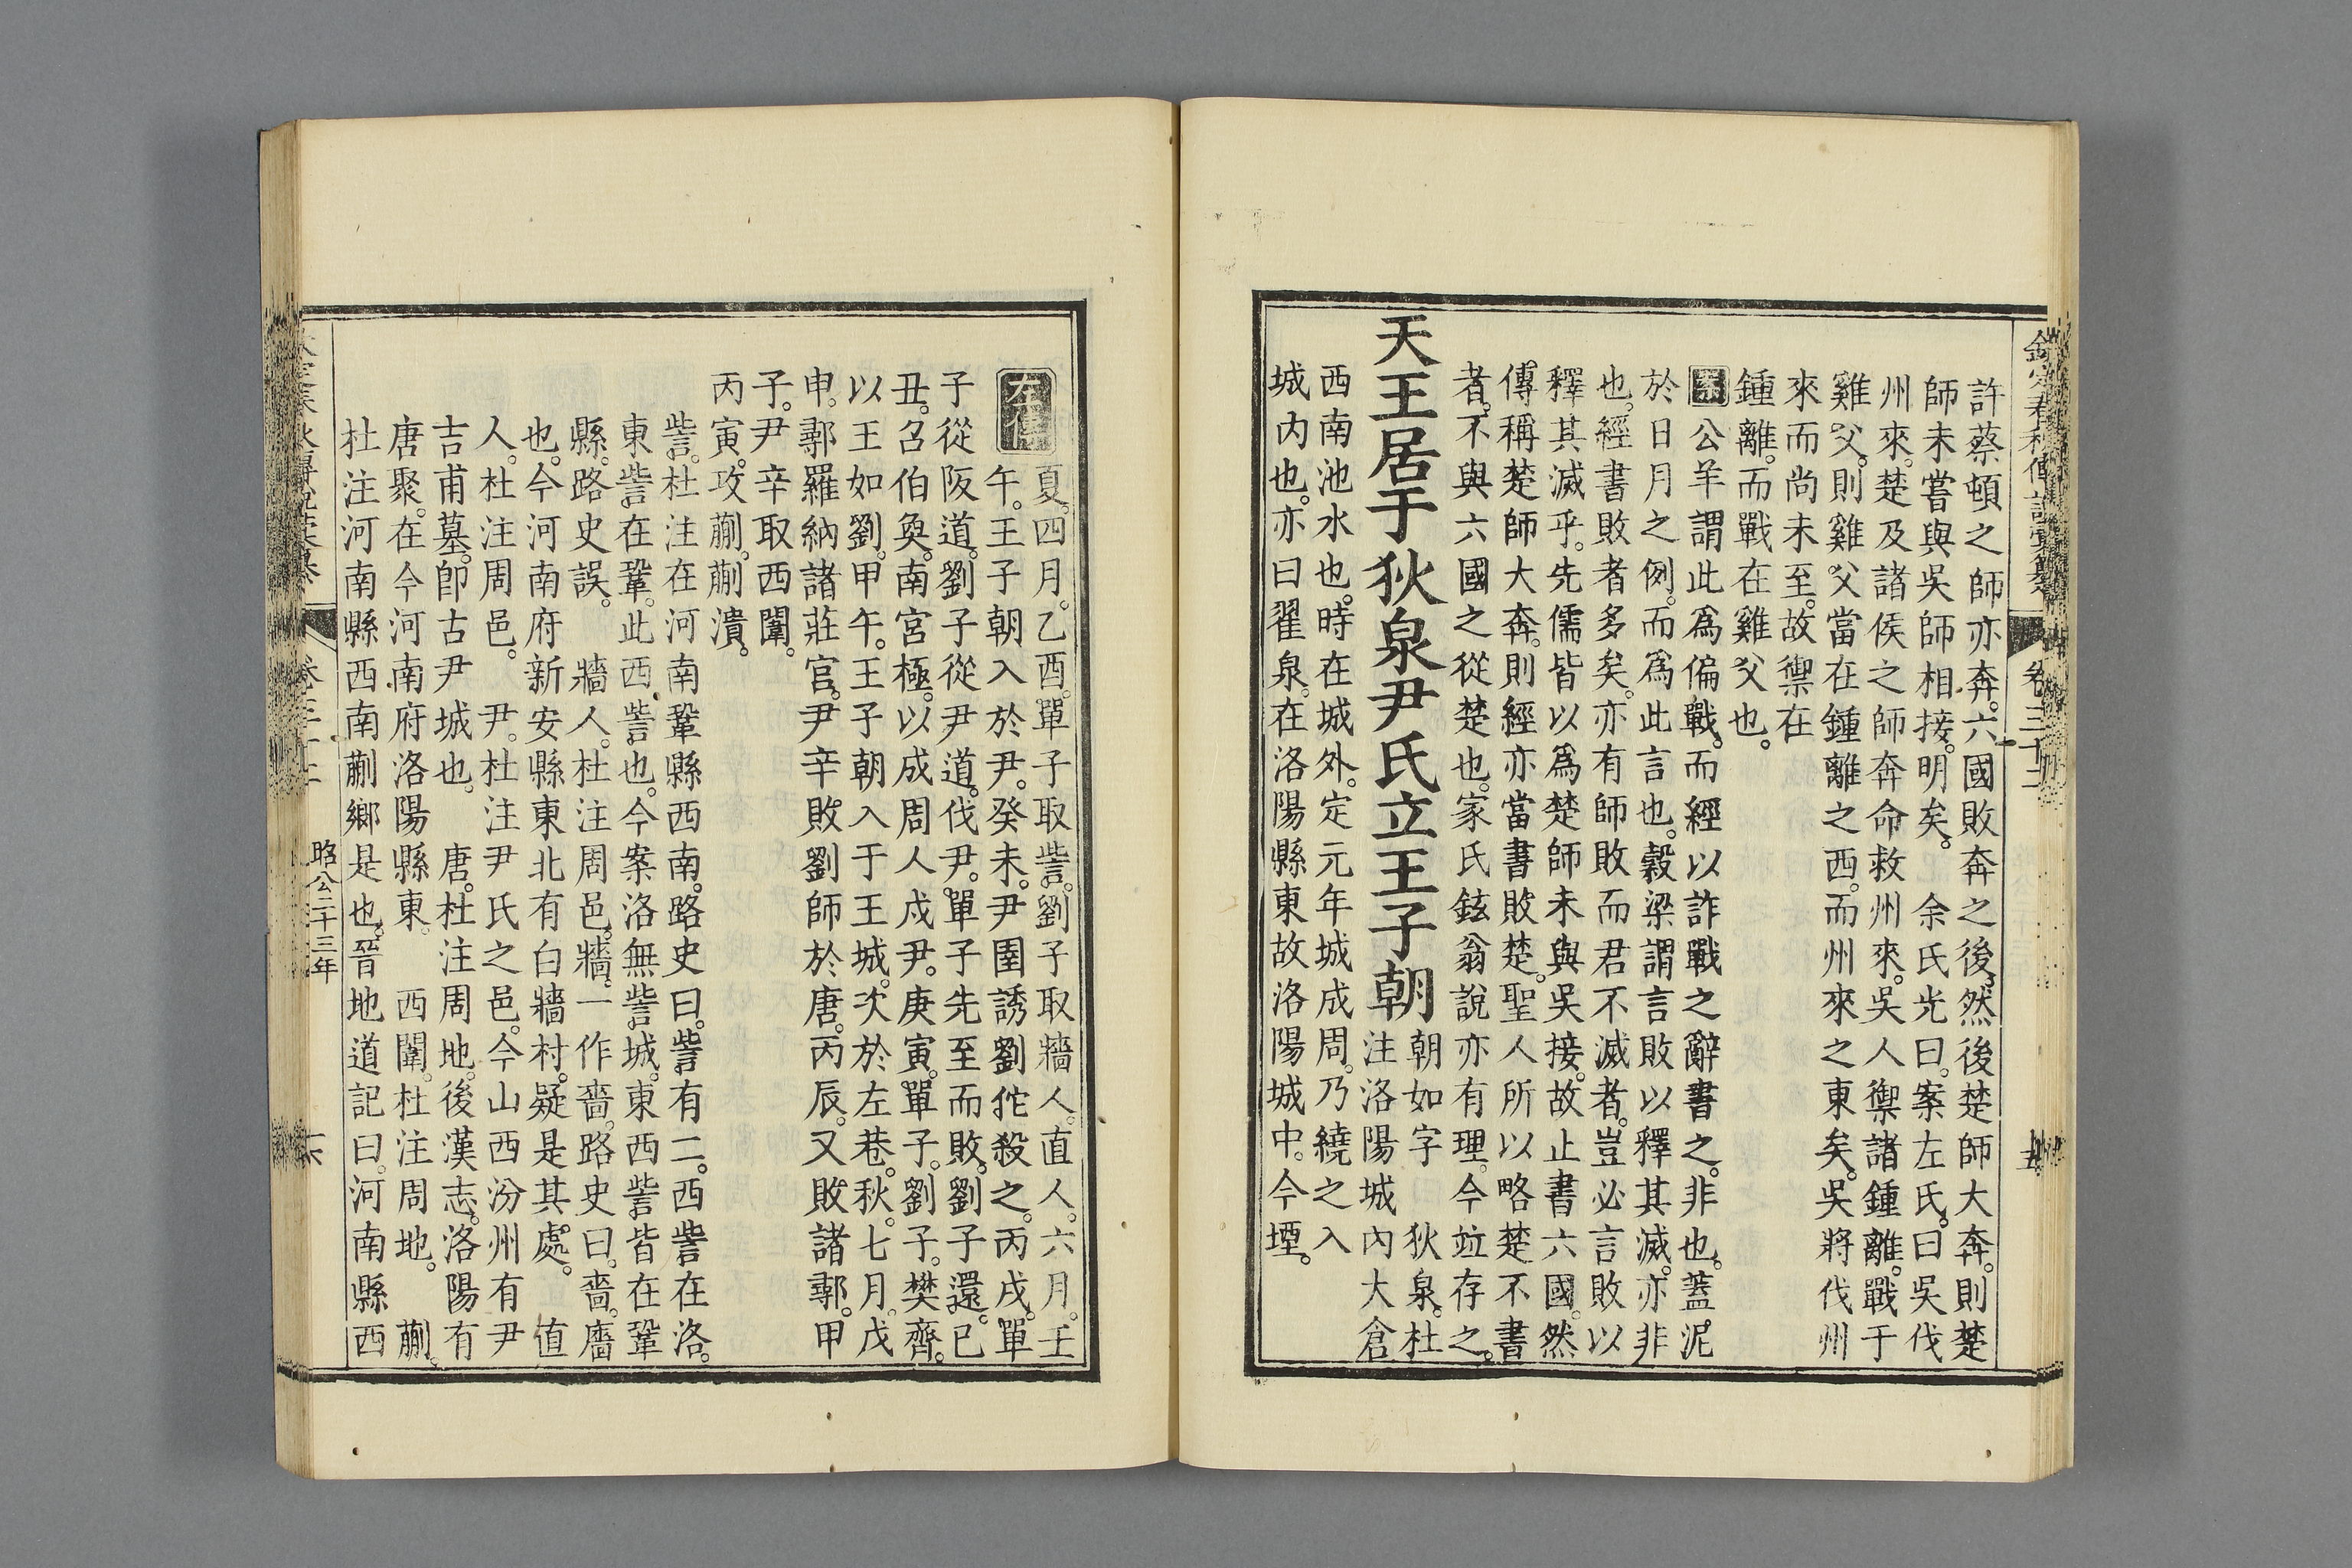 欽定春秋傳說彙纂
卷三十二
許蔡頓之師亦奔。六國敗奔之後。然後楚師大奔。則楚
師未嘗與吳師相接。明矣。 余氏光曰。案左氏。曰吳伐
州來。楚及諸侯之師奔命救州來。吳人禦諸鍾離。戰于
雞父。則雞父當在鍾離之西。而州來之東矣。吳將伐州
來而尚未至。故禦在
鍾離。而戰在雞父也。
案公羊謂此爲偏戰。而經以詐戰之辭書之。非也。蓋泥
於日月之例。而爲此言也。穀梁謂言敗以釋其滅。亦非
也。經書敗者多矣。亦有師敗而君不滅者。豈必言敗以
釋其滅乎。先儒皆以爲楚師未與吳接。故止書六國。然
傳稱楚師大奔。則經亦當書敗楚。聖人所以略楚不書
者。不與六國之從楚也。家氏鉉翁說亦有理。今竝存之。
天王居于狄泉尹氏立王子朝
朝如字 狄泉。杜
注洛陽城內大倉
西南池水也。時在城外。定元年城成周。乃繞之入
城内也。亦曰翟泉。在洛陽縣東故洛陽城中。今堙。
左傳
夏。四月。乙酉。單子取訾。劉子取牆人。直人。六月。壬
午。王子朝入於尹。癸未。尹圉誘劉佗殺之。丙戌。單
子從阪道。劉子從尹道。伐尹。單子先至而敗。劉子還。己
丑。召伯奐。南宮極。以成周人戍尹。庚寅。單子。劉子。樊齊。
以王如劉。甲午。王子朝入于王城。次於左巷。秋。七月。戊
申。鄩羅納諸莊宮。尹辛敗劉師於唐。丙辰。又敗諸鄩。甲
子。尹辛取西闈。
丙寅。攻蒯。蒯潰。
訾。杜注在河南鞏縣西南。路史曰。訾有二。西訾在洛。
東訾。在鞏。此西訾也。今案洛無訾城。東西訾皆在鞏
縣。路史誤。 牆人。杜注周邑。牆。一作嗇。路史曰。嗇。廧
也。今河南府新安縣東北有白牆村。疑是其處。 值
人。杜注周邑。 尹。杜注尹氏之邑。今山西汾州有尹
吉甫墓。卽古尹城也。 唐。杜注周地。後漢志。洛陽有
唐聚。在今河南府洛陽縣東。 西闈。杜注周地。 蒯。
杜注河南縣西南蒯鄉是也。晉地道記曰。河南縣西
昭公二十三年